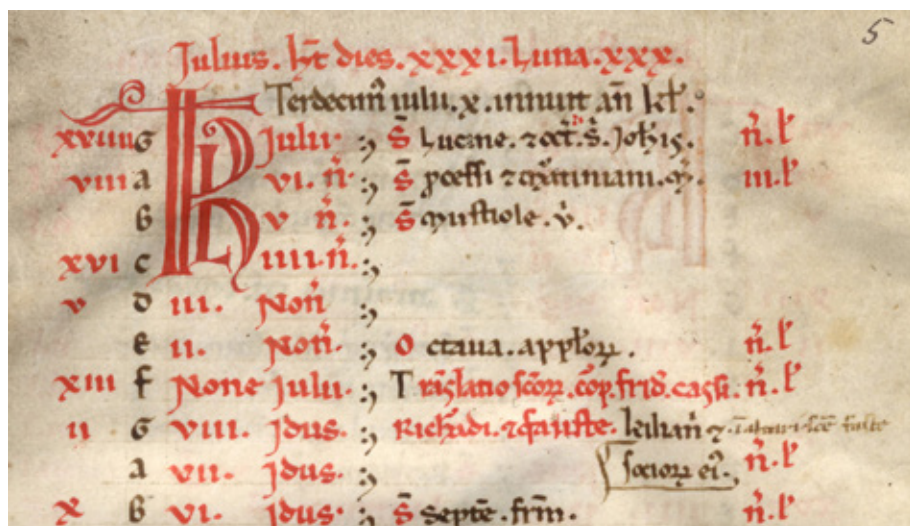 5
Julius. h̅t dies. xxxi. Luna. xxx.
Terdecim᷒ iulii. x. innuit an̅ kl̅.
xviiii G Julii. S̅ Lucine. ⁊ oct̅. S̅. Joh̅is. n̅. l̅
viii a vi. n̅. S̅ ꝓcessi ⁊ martiniani. m̅. iii. l̅
b v n̅. S̅ Mustiole. v̅.
xvi c iiii. n̅.
v d iii. Non̅
e ii. Non̅. Octava. appl̅oꝝ. n̅. l̅
xiii f None Julii. Tra̅slatio sc̅oꝝ. co̅p. frid̅. cassi. n̅. l̅
ii G viii. Idus. Rich̅adi. ⁊ fauste. kilian̅ ⁊
a vii. Idus. socioꝝ ei᷒. n̅. l̅
x b vi. Idus. S̅ Septe̅. fr̅m. n̅. l̅